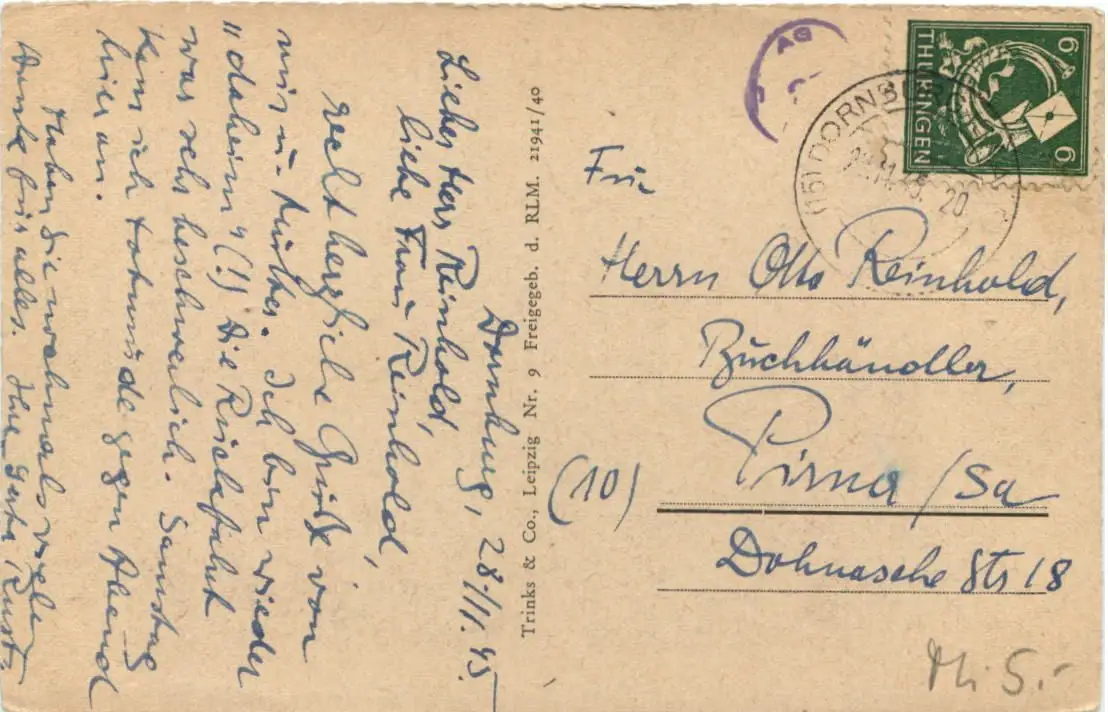 Dornburg, 28.11.45.
Lieber Herr Reinhold,
liebe Frau Reinhold,
recht herzliche Grüße von
mir u. Mutter. Ich bin wieder
"daheim" (!) Die Rückfahrt
war sehr beschwerlich. Samstag
kam ich totmüde gegen Abend
hier an.
Haben Sie nochmals vielen
Dank für alles. Ihre
Trinks & Co., Leipzig Nr. 9 Freigegeb. d. RLM. 21941/40
AG
THÜRINGEN
6 6
(15) DORNBURG
20
Für
Herrn Otto Reinhold,
Buchhändler,
(10) Pirna/Sa
Dohnasche Str 18
Mi. 5.-